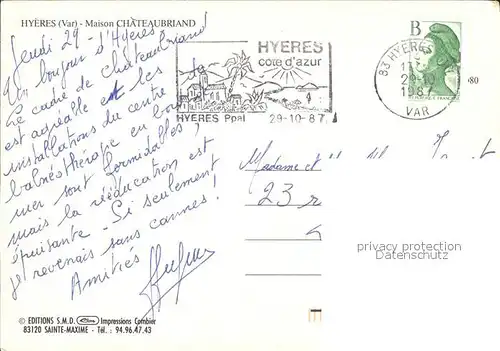 HYÈRES (Var) - Maison CHÂTEAUBRIAND
Jeudi 29 -
Un bonjour d'Hyères
Le cadre de Châteaubriand
est agréable et les
installations du centre de
balnéothérapie en bord de
mer sont formidables,
mais la rééducation est
épuisante - Si seulement
je revenais sans cannes!
Amitiés
HYERES
cote d'azur
HYERES Ppal 29-10-87
B
83 HYERES
29-10
1987
VAR
80
Madame et
23 r
privacy protection
Datenschutz
© EDITIONS S.M.D. Impressions Combier
83120 SAINTE-MAXIME - Tél. : 94.96.47.43